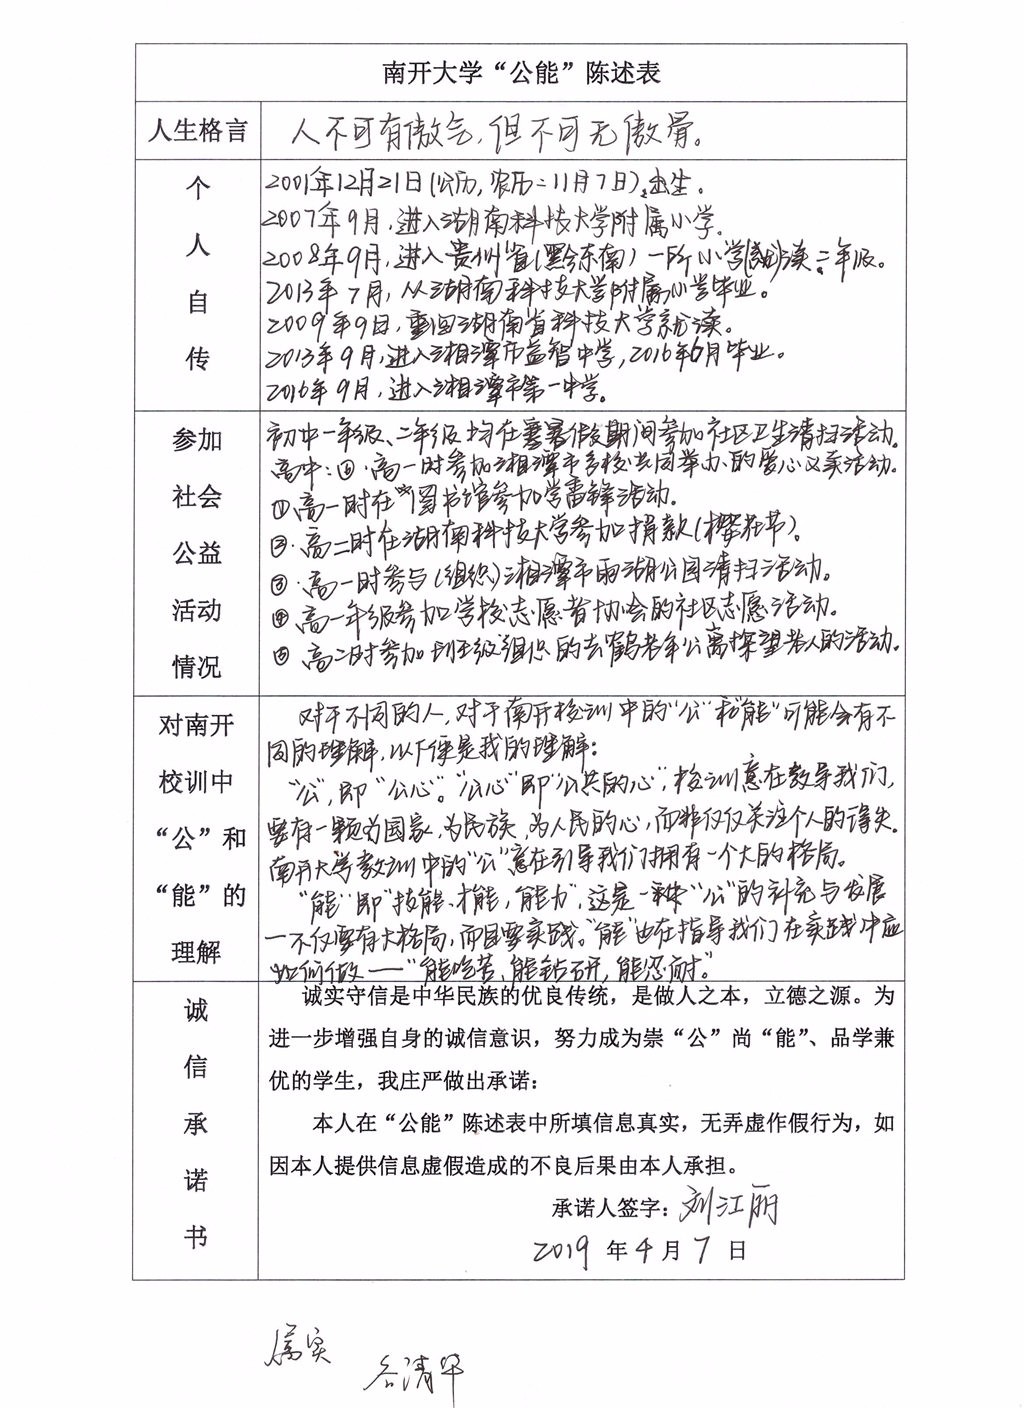 南开大学“公能”陈述表
人生格言
人不可有傲气，但不可无傲骨。
个人自传
2001年12月21日(公历，农历：11月7日)出生。
2007年9月，进入湖南科技大学附属小学。
2008年9月，进入贵州省(黔东南)一所小学就读二年级。
2013年7月，从湖南科技大学附属小学毕业。
2009年9日，重回湖南省科技大学就读。
2013年9月，进入湘潭市益智中学，2016年6月毕业。
2016年9月，进入湘潭市第一中学。
参加
社会
公益
活动
情况
初中一年级、二年级均在寒暑假期间参加社区卫生清扫活动。
高中：高一时参加湘潭市多校共同举办的爱心义卖活动。
①高一时在图书馆参加学雷锋活动。
②·高二时在湖南科技大学参加捐款(樱花节)。
③·高一时参与(组织)湘潭市雨湖公园清扫活动。
④高一年级参加学校志愿者协会的社区志愿活动。
⑤高二时参加班级组织的去鹤老年公寓探望老人的活动。
对南开
校训中
“公”和
“能”的
理解
对于不同的人，对于南开校训中的“公”和“能”可能会有不
同的理解，以下便是我的理解：
“公”，即“公心”。“公心”即“公共的心”，校训意在教导我们，
要有一颗为国家，为民族，为人民的心，而非仅仅关注个人的得失。
南开大学教训中的“公”意在引导我们拥有一个大的格局。
“能”即“技能、才能，能力”，这是一种“公”的补充与发展
一不仅要有大格局，而且要实践。“能”也在指导我们在实践中应
如何做——“能吃苦、能钻研，能忍耐。”
诚
信
承
诺
书
诚实守信是中华民族的优良传统，是做人之本，立德之源。为
进一步增强自身的诚信意识，努力成为崇“公”尚“能”、品学兼
优的学生，我庄严做出承诺：
本人在“公能”陈述表中所填信息真实，无弄虚作假行为，如
因本人提供信息虚假造成的不良后果由本人承担。
承诺人签字：刘江丽
2019年4月7日
属实
谷清华